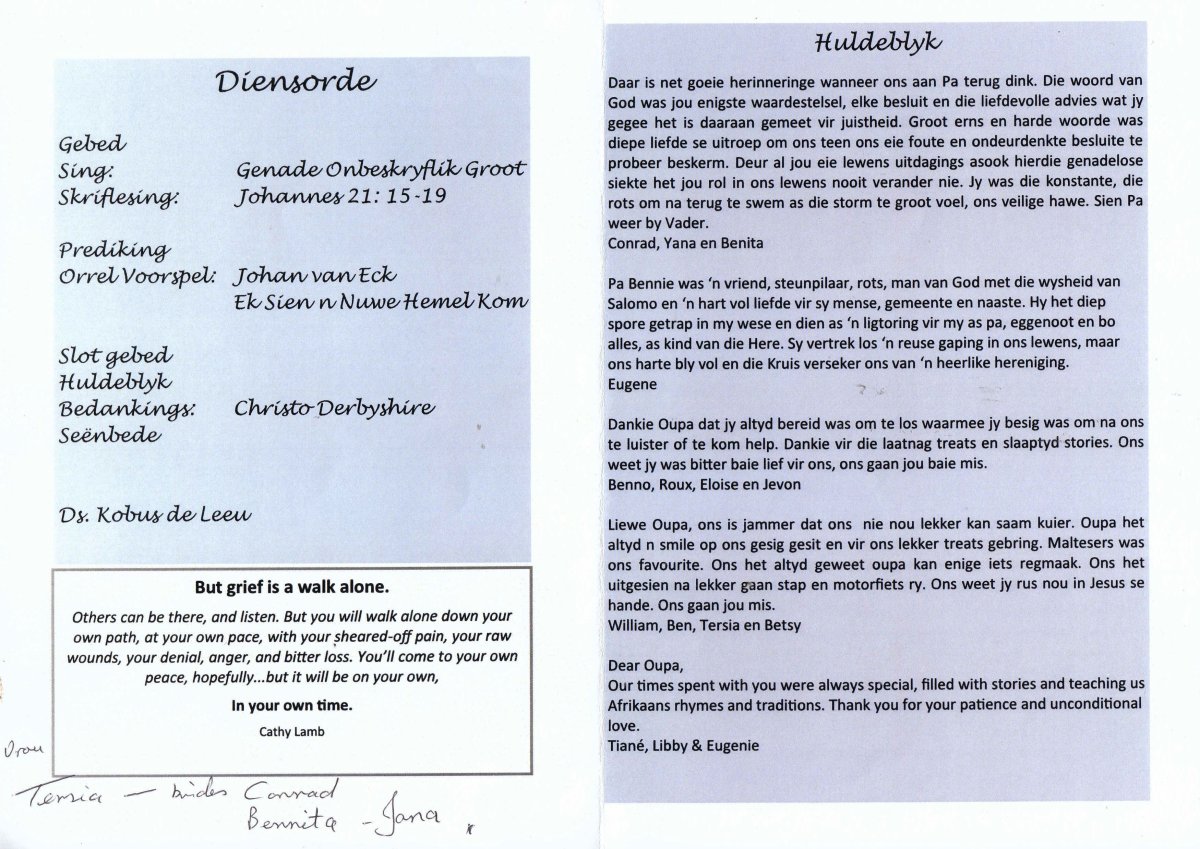 Diensorde
Gebed
Sing: Genade Onbeskryflik Groot
Skriflesing: Johannes 21: 15-19
Prediking
Orrel Voorspel: Johan van Eck
Ek Sien n Nuwe Hemel Kom
Slot gebed
Huldeblyk
Bedankings: Christo Derbyshire
Seënbede
Ds. Kobus de Leeu
But grief is a walk alone.
Others can be there, and listen. But you will walk alone down your
own path, at your own pace, with your sheared-off pain, your raw
wounds, your denial, anger, and bitter loss. You'll come to your own
peace, hopefully...but it will be on your own,
In your own time.
Cathy Lamb
Vrou
Tersia — Conrad
Bennita - Jana
Huldeblyk
Daar is net goeie herinneringe wanneer ons aan Pa terug dink. Die woord van
God was jou enigste waardestelsel, elke besluit en die liefdevolle advies wat jy
gegee het is daaraan gemeet vir juistheid. Groot erns en harde woorde was
diepe liefde se uitroep om ons teen ons eie foute en ondeurdenkte besluite te
probeer beskerm. Deur al jou eie lewens uitdagings asook hierdie genadelose
siekte het jou rol in ons lewens nooit verander nie. Jy was die konstante, die
rots om na terug te swem as die storm te groot voel, ons veilige hawe. Sien Pa
weer by Vader.
Conrad, Yana en Benita
Pa Bennie was 'n vriend, steunpilaar, rots, man van God met die wysheid van
Salomo en 'n hart vol liefde vir sy mense, gemeente en naaste. Hy het diep
spore getrap in my wese en dien as 'n ligtoring vir my as pa, eggenoot en bo
alles, as kind van die Here. Sy vertrek los 'n reuse gaping in ons lewens, maar
ons harte bly vol en die Kruis verseker ons van 'n heerlike hereniging.
Eugene
Dankie Oupa dat jy altyd bereid was om te los waarmee jy besig was om na ons
te luister of te kom help. Dankie vir die laatnag treats en slaaptyd stories. Ons
weet jy was bitter baie lief vir ons, ons gaan jou baie mis.
Benno, Roux, Eloise en Jevon
Liewe Oupa, ons is jammer dat ons nie nou lekker kan saam kuier. Oupa het
altyd n smile op ons gesig gesit en vir ons lekker treats gebring. Maltesers was
ons favourite. Ons het altyd geweet oupa kan enige iets regmaak. Ons het
uitgesien na lekker gaan stap en motorfiets ry. Ons weet jy rus nou in Jesus se
hande. Ons gaan jou mis.
William, Ben, Tersia en Betsy
Dear Oupa,
Our times spent with you were always special, filled with stories and teaching us
Afrikaans rhymes and traditions. Thank you for your patience and unconditional
love.
Tiané, Libby & Eugenie